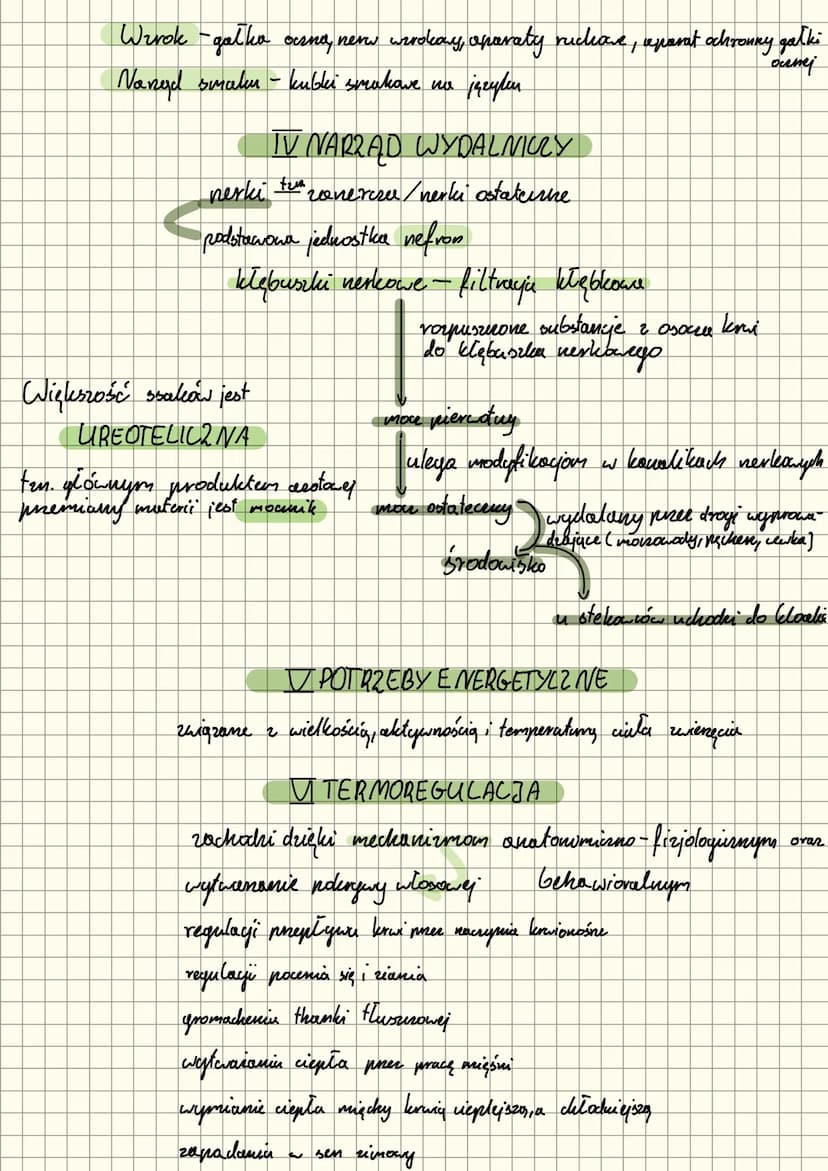 Wzrok - gałka oczna, nerw wzrokowy, aparaty ruchowe, aparat ochronny gałki
ocznej
Narząd smaku - kubki smakowe na języku
IV NARZĄD WYDALNICZY
nerki tzw zanercza/nerki ostateczne
podstawowa jednostka nefron
kłębuszki nerkowe - filtracja kłębkowa
rozpuszczone substancje z osocza krwi
do kłębuszka nerkowego
Większość ssaków jest
UREOTELICZNA
tzn. głównym produktem azotowej
przemiany materii jest mocznik
mocz pierwotny
ulega modyfikacjom w kanalikach nerkowych
mocz ostateczny
wydalany przez drogi wyprowa-
dzające (moczowody, pęcherz, cewka)
środowisko
u stekowców uchodzi do kloaki
V POTRZEBY ENERGETYCZNE
związane z wielkością, aktywnością i temperaturą ciała zwierzęcia
VI TERMOREGULACJA
zachodzi dzięki mechanizmom anatomiczno-fizjologicznym oraz
behawioralnym
wytwarzanie pokrywy włosowej
regulacji przepływu krwi przez naczynia krwionośne
regulacji pocenia się i ziania
gromadzenia tkanki tłuszczowej
wytwarzania ciepła przez pracę mięśni
wymianie ciepła między krwią cieplejszą, a chłodniejszą
zapadania w sen zimowy